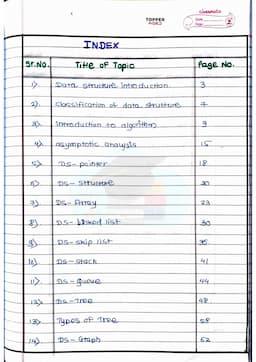 TOPPER
classmate
INDEX
Sr.No. Title of Topic Page No.
1). Data structure introduction 3
2). classification of data structure 7
3). Introduction to algorithm 9
4). asymptotic analysis 15
5). DS- pointer 18
6) DS- structure 20
7) DS- Array 23
8). DS- linked list 30
9). DS- skip list 35
10). DS- stack 41
11). DS- queue 44
12). DS-Tree 48
13). Types of Tree 58
14). DS- Graph 62